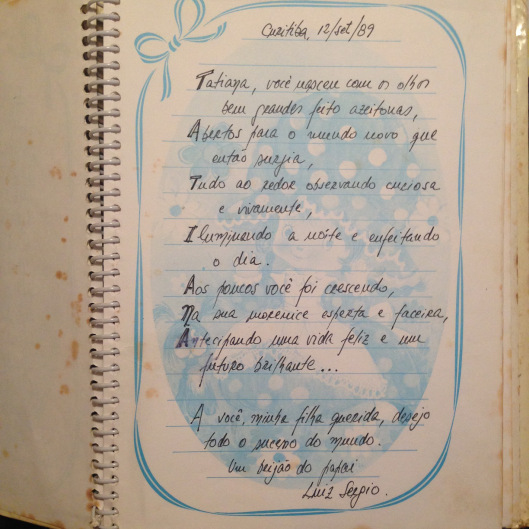 Curitiba, 12/set/89
Tatiana, você nasceu com os olhos
bem grandes feito azeitonas,
Abertos para o mundo novo que
então surgia,
Tudo ao redor observando curiosa
e vivamente,
Iluminando a noite e enfeitando
o dia.
Aos poucos você foi crescendo,
Na sua morenice esperta e faceira,
Antecipando uma vida feliz e um
futuro brilhante...
A você, minha filha querida, desejo
todo o sucesso do mundo.
Um beijão do papai
Luiz Sergio.